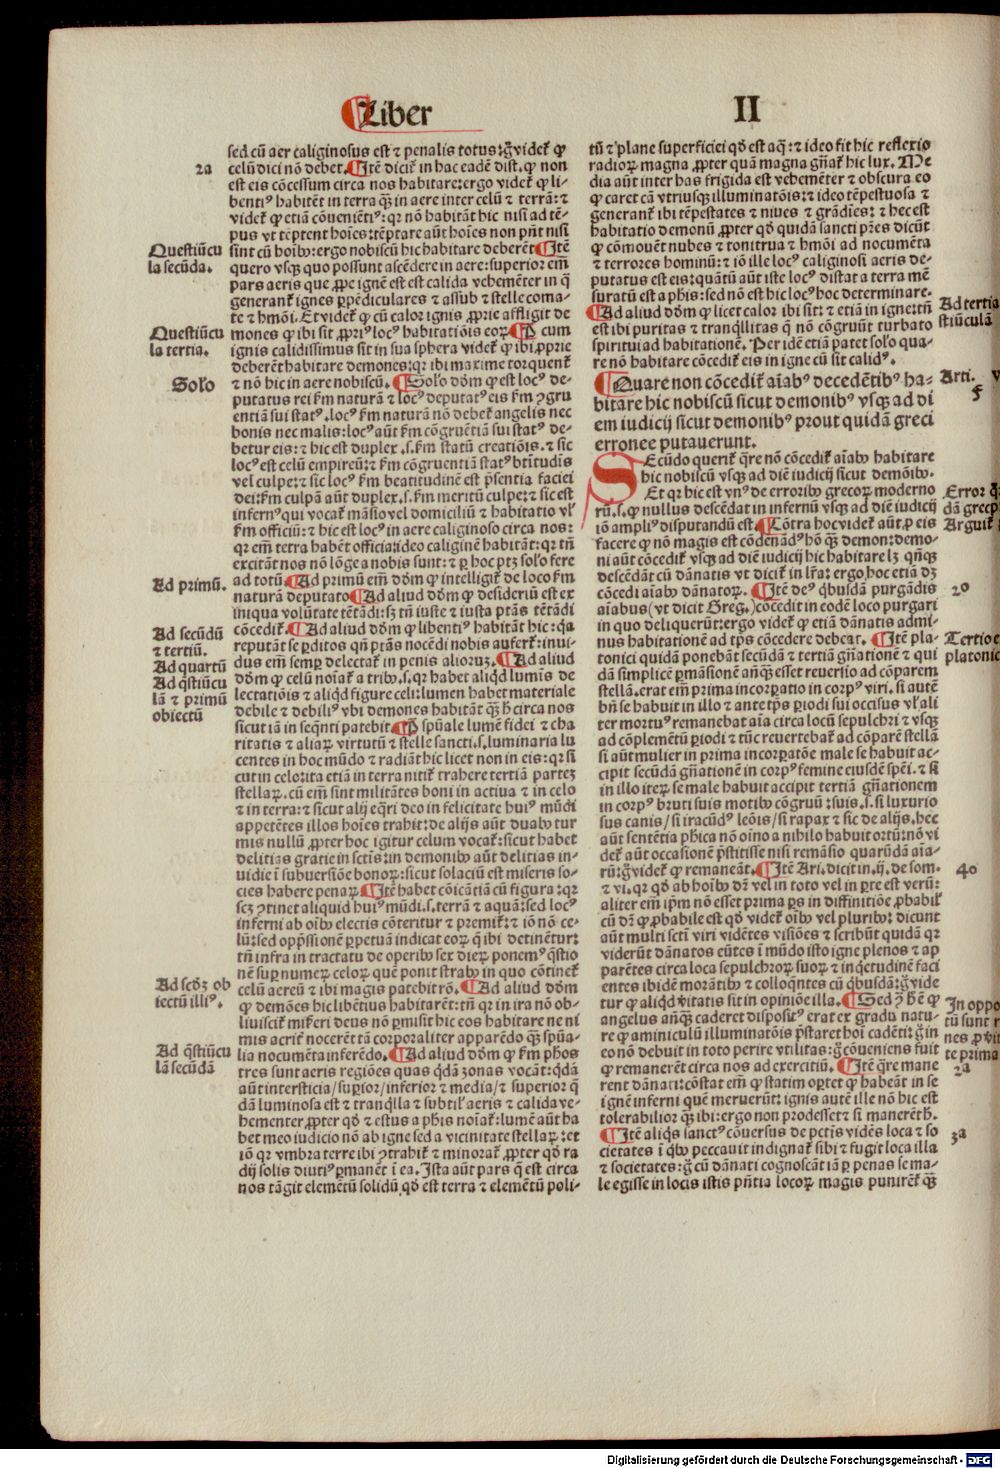 Liber
II
sed cū aer caliginosus est ⁊ penalis totus: g̃ videt̃ ꝙ
2a
celū dici nō debet. Itē dicit̃ in hac eadē dist. ꝙ non
est eis cōcessum circa nos habitare: ergo videt̃ ꝙ li-
bentiꝰ habitēt in terra q̄ȝ in aere inter celū ⁊ terrā: ⁊
videt̃ ꝙ etiā cōueniētiꝰ: qꝛ nō habitāt hic nisi ad tē-
pus vt tēptent hoīes: tēptare aūt hoīes non pn̄t nisi
Questiūcu
la secūda.
sint cū hoībꝰ: ergo nobiscū hic habitare deberēt Itē
quero vsqȝ quo possunt ascēdere in aere: superior em̄
pars aeris que ꝓpe ignē est est calida vehemēter in q̄
generant̃ ignes ꝑpēdiculares ⁊ assub ⁊ stelle coma-
te ⁊ hm̄oi. Et videt̃ ꝙ cū calor ignis ꝓprie affligit de
Questiūcu
la tertia.
mones ꝙ ibi sit ꝓpriꝰ locꝰ habitatiōis eoꝝ P̄ cum
ignis calidissimus sit in sua sphera videt̃ ꝙ ibi ꝓprie
deberēt habitare demones: qꝛ ibi maxime torquent̃
Solo
⁊ nō hic in aere nobiscū. Solo dōm ꝙ est locꝰ de-
putatus rei s̄m naturā ⁊ locꝰ deputatꝰ eis s̄m ꝯgru
entiam sui statꝰ. locꝰ s̄m naturā nō debet̃ angelis nec
bonis nec malis: locꝰ aūt s̄m cōgruētiā sui statꝰ de-
betur eis: ⁊ hic est duplex .s. s̄m statū creatiōis. ⁊ sic
locꝰ est celū empireū: ⁊ s̄m cōgruentiā statꝰ btītudīs
vel culpe: ⁊ sic locꝰ s̄m beatitudinē est p̄sentia faciei
dei: s̄m culpā aūt duplex .s. s̄m meritū culpe: ⁊ sic est
infernꝰ qui vocat̃ māsio vel domiciliū ⁊ habitatio vl̃
s̄m officiū: ⁊ hic est locꝰ in aere caliginoso circa nos:
qꝛ em̄ terra habēt officia: ideo caliginē habitāt: qꝛ tn̄
excitāt nos nō lōge a nobis sunt: ⁊ ꝑ hoc ptȝ solo fere
Ad primū.
ad totū Ad primū em̄ dōm ꝙ intelligit̃ de loco s̄m
naturā deputato Ad aliud dōm ꝙ desideriū est ex
iniqua volūtate tētādi: sȝ tn̄ iuste ⁊ iusta ptās tētādi
Ad secūdū
⁊ tertiū.
cōcedit̃. Ad aliud dōm ꝙ libentiꝰ habitāt hic: q̄a
reputāt se ꝑditos qn̄ ptās nocēdi nobis aufert̃: inui-
Ad quartū
Ad q̄stiūcu
lā ⁊ primū
obiectū
dus em̄ semꝑ delectat̃ in penis alioruȝ. Ad aliud
dōm ꝙ celū noīat̃ a tribꝰ .s. qꝛ habet aliqd lumis de
lectatiōis ⁊ aliqd figure celi: lumen habet materiale
debile ⁊ debiliꝰ vbi demones habitāt q̄ȝ h̄ circa nos
sicut iā in seq̄nti patebit P̄ spūale lumē fidei ⁊ cha
ritatis ⁊ aliaꝝ virtutū ⁊ stelle sancti .s. luminaria lu
centes in hoc mūdo ⁊ radiāt hic licet non in eis: qꝛ si
cut in celo: ita etiā in terra nitit̃ trahere tertiā parteȝ
stellaꝝ. cū em̄ sint militātes boni in actiua ⁊ in celo
⁊ in terra: ⁊ sicut alij eq̄ri deo in felicitate huiꝰ mūdi
appetētes illos hoīes trahit: de alijs aūt duabꝰ tur
mis nullū ꝓpter hoc igitur celum vocat̃: sicut habet
delitias gratie in sctīs: in demonibꝰ aūt delitias in-
uidie ī subuersiōe bonoꝝ: sicut solaciū est miseris so-
cies habere penaꝝ Itē habet cōicantiā cū figura: qꝛ
scȝ ꝯtinet aliquid huiꝰ mūdi .s. terrā ⁊ aquā: sed locꝰ
inferni ab oībꝰ electis cōteritur ⁊ premit̃: ⁊ iō nō ce-
lū: sed opp̄ssionē ꝑpetuā indicat eoꝝ q̄ ibi detinētur:
tn̄ infra in tractatu de operibꝰ sex dieꝝ ponemꝰ q̄stio
nē suꝑ numeꝝ celoꝝ quē ponit strabꝰ in quo cōtinet̃
Ad scdȝ ob
iectū illiꝰ.
celū aereū ⁊ ibi magis patebit rō. Ad aliud dōm
ꝙ demōes hic libētius habitarēt: tn̄ qꝛ in ira nō ob-
liuiscit̃ miseri deus nō ꝑmisit hic eos habitare ne ni
mis acrit̃ nocerēt tā corporaliter apparēdo q̄ȝ spūa-
Ad q̄stiūcu
lā secūdā
lia nocumēta inferēdo. Ad aliud dōm ꝙ s̄m phos
tres sunt aeris regiōes quas q̄dā zonas vocāt: q̄dā
aūt intersticia/ suꝑior/ inferior ⁊ media/ ⁊ superior q̄
dā luminosa est ⁊ tranq̄lla ⁊ subtil̃ aeris ⁊ calida ve-
hementer ꝓpter qd ⁊ estus a phis noīat̃: lumē aūt ha
bet meo iudicio nō ab igne sed a vicinitate stellaꝝ: et
iō qꝛ vmbra terre ibi ꝯtrahit̃ ⁊ minorat̃ ꝓpter qd ra
dij solis diutiꝰ ꝑmanēt ī ea. Ista aūt pars q̄ est circa
nos tāgit elemētū solidū qd est terra ⁊ elemētū poli-
tū ⁊ plane superficiei qd est aq̄: ⁊ ideo fit hic reflexio
radioꝝ magna ꝓpter quā magna gn̄at̃ hic lux. Me
dia aūt inter has frigida est vehemēter ⁊ obscura eo
ꝙ caret cā vtriusqȝ illuminatōis: ⁊ ideo tēpestuosa ⁊
generant̃ ibi tēpestates ⁊ niues ⁊ grādīes: ⁊ hec est
habitatio demonū ꝓpter qd quidā sancti pr̄es dicūt
ꝙ cōmouēt nubes ⁊ tonitrua ⁊ hmōi ad nocumēta
⁊ terrores hominū: ⁊ iō ille locꝰ caliginosi aeris de-
putatus est eis: quātū aūt iste locꝰ distat a terra mē
suratū est a phis: sed nō est hic locꝰ hoc determinare.
Ad tertiā
stiūculā
Ad aliud dōm ꝙ licet calor ibi sit: ⁊ etiā in igne: tn̄
est ibi puritas ⁊ tranq̄llitas q̄ nō cōgruūt turbato
spiritui ad habitationē. Per idē etiā patet solo qua-
re nō habitare cōcedit̃ eis in igne cū sit calidꝰ.
Arti. v
Quare non cōcedit̃ aīabꝰ decedētibꝰ ha-
bitare hic nobiscū sicut demonibꝰ vsqȝ ad di
em iudicij sicut demonibꝰ prout quidā greci
erronee putauerunt.
Secūdo querit̃ q̄re nō cōcedit̃ aīabꝰ habitare
hic nobiscū vsqȝ ad diē iudicij sicut demōibꝰ.
Error q̄
dā grecoꝝ
Arguit̃
Et qꝛ hic est vnꝰ de erroribꝰ grecoꝝ moderno
rū .s. ꝙ nullus descēdat in infernū vsqȝ ad diē iudicij
iō ampliꝰ disputandū est. Cōtra hoc videt̃ aūt ꝓ eis
facere ꝙ nō magis est cōdēnādꝰ hō q̄ȝ demon: demo-
ni aūt cōcedit̃ vsqȝ ad diē iudicij hic habitare lȝ qn̄qȝ
descēdāt cū dānatis vt dicit̃ in lr̄a: ergo hoc etiā dȝ
2o
cōcedi aīabꝰ dānatoꝝ. Itē deꝰ q̄busdā purgādis
aīabus (vt dicit Greg.) cōcedit in eodē loco purgari
in quo deliquerūt: ergo videt̃ ꝙ etiā dānatis admi-
Tertio e
platonic
nus habitationē ad tp̄s cōcedere debeat. Itē pla-
tonici quidā ponebāt secūdā ⁊ tertiā gn̄ationē ⁊ qui
dā simplicē ꝑmāsionē anq̄ȝ esset reuersio ad cōparem
stellā. erat em̄ prima incorꝑatio in corpꝰ viri. si autē
bn̄ se habuit in illo ⁊ ante tp̄s ꝑiodi sui occisus vl̃ ali
ter mortuꝰ remanebat aīa circa locū sepulchri ⁊ vsqȝ
ad cōplemētū ꝑiodi ⁊ tūc reuertebat̃ ad cōparē stellā
si aūt mulier in prima incorꝑatōe male se habuit ac-
cipit secūdā gn̄ationē in corpꝰ femine eiusdē spēi. ⁊ si
in illo iteꝝ se male habuit accipit tertiā gn̄ationem
in corpꝰ bruti suis motibꝰ cōgruū: suis .s. si luxurio
sus canis/ si iracūdꝰ leōis/ si rapax ⁊ sic de alijs. hec
aūt sentētia ph̄ica nō oīno a nihilo habuit ortū: nō vi
det̃ aūt occasionē p̄stitisse nisi remāsio quarūdā aīa-
4o
rū: g̃ videt̃ ꝙ remaneāt. Itē Ari. dicit in .ij. de som.
⁊ vi. qꝛ qd ab hoībꝰ dr̄ vel in toto vel in ꝑte est verū:
aliter em̄ ip̄m nō esset prima ꝑs in diffinitiōe ꝓbabil̃
cū dr̄ ꝙ ꝓbabile est qd videt̃ oībꝰ vel pluribꝰ: dicunt
aūt multi sctī viri vidētes visiōes ⁊ scribūt quidā qꝛ
viderūt dānatos eūtes ī mūdo isto igne plenos ⁊ ap
parētes circa loca sepulchroꝝ suoꝝ ⁊ inq̄etudinē faci
entes ibidē morātibꝰ ⁊ colloq̄ntes cū q̄busdā: g̃ vide
In oppo
tū sunt r
nes ꝙ vi
te prima
tur ꝙ aliqd v̄itatis sit in opiniōe illa. Sed ꝯ h̄ ē ꝙ
angelus anq̄ȝ caderet dispositꝰ erat ex gradu natu-
re ꝙ aminiculū illuminatōis p̄staret hoī cadēti: g̃ in
eo nō debuit in toto perire vtilitas: g̃ cōueniens fuit
2a
ꝙ remanerēt circa nos ad exercitiū. Itē q̄re mane
rent dānati: cōstat em̄ ꝙ statim oꝑtet ꝙ habeāt in se
ignē inferni quē meruerūt: ignis autē ille nō hic est
tolerabilior q̄ȝ ibi: ergo non prodesset ⁊ si manerēt h̄.
3a
Itē aliq̄s sanctꝰ cōuersus de pctīs vidēs loca ⁊ so
cietates ī q̄bꝰ peccauit indignat̃ sibi ⁊ fugit loca illa
⁊ societates: g̃ cū dānati cognoscāt iā ꝑ penas se ma-
le egisse in locis istis pn̄tia locoꝝ magis punirēt̃ q̄ȝ
Digitalisierung gefördert durch die Deutsche Forschungsgemeinschaft - DFG